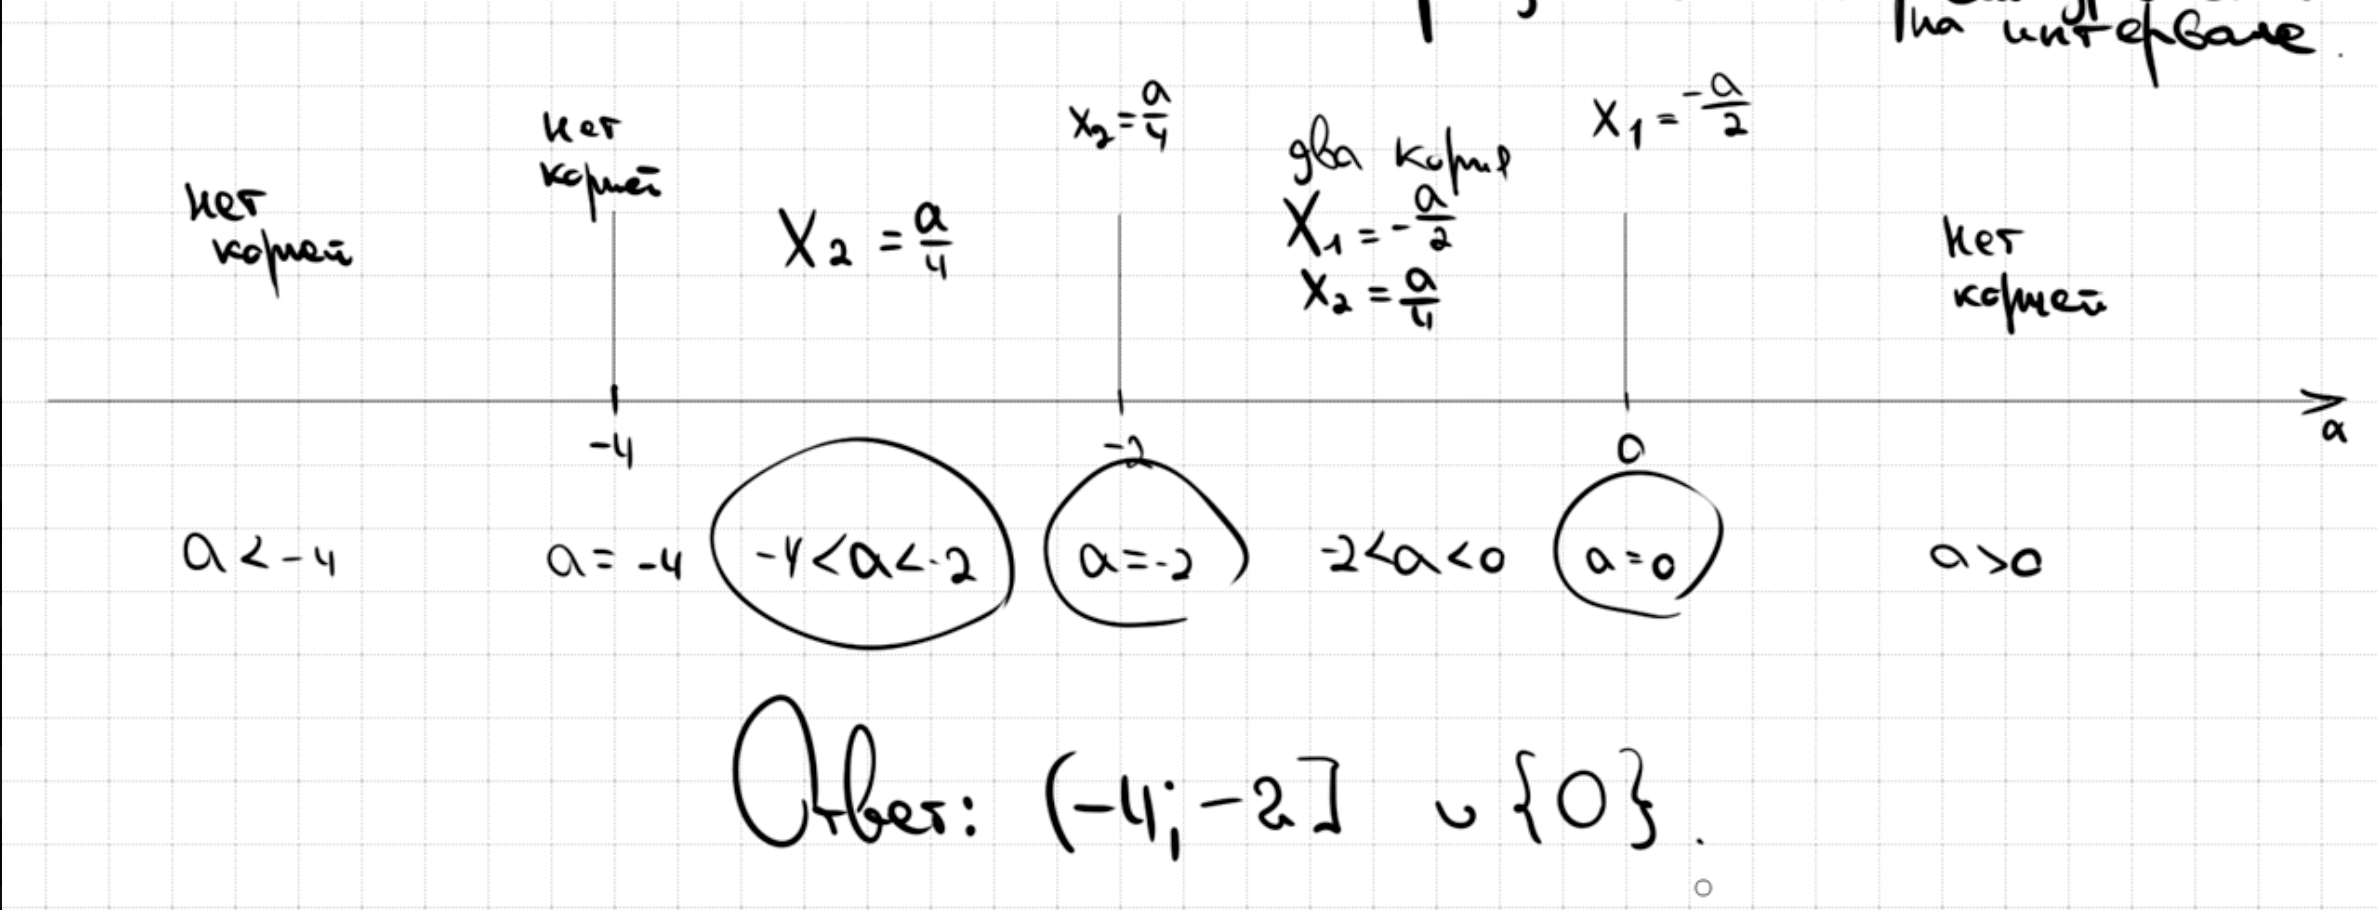 на интервале.
нет
корней
нет
корней
X₂ = a/4
x₂ = a/4
два корня
X₁ = -a/2
x₂ = a/4
x₁ = -a/2
нет
корней
-4 -2 0 a
a < -4 a = -4 -4 < a < -2 a = -2 -2 < a < 0 a = 0 a > 0
Ответ: (-4; -2] ∪ {0}.